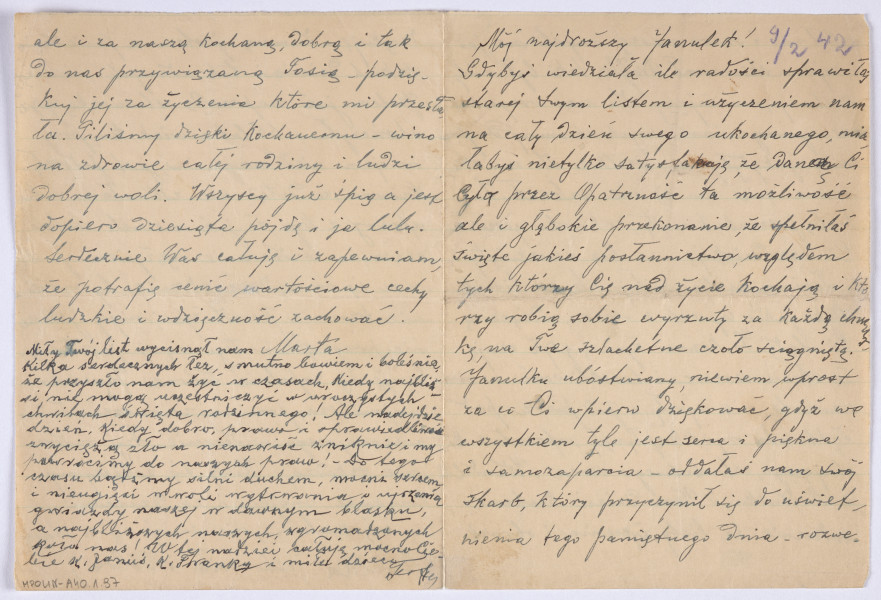 Mój najdroższy Janulek! 9/2 42
Gdybyś wiedziała ile radości sprawiłaś
starej swym listem i użyczeniem nam
na cały dzień swego ukochanego, mia
łabyś nietylko satysfakcję, że danem Ci
było przez Opatrzność ta możliwość
ale i głębokie przekonanie, że spełniłaś
święte jakieś posłannictwo, względem
tych którzy Cię nad życie kochają i któ
rzy robią sobie wyrzuty za każdą chmur
kę, na Twe szlachetne czoło ściągniętą.
Janulku ubóstwiany, niewiem wprost
za co Ci wpierw dziękować, gdyż we
wszystkiem tyle jest serca i piękna
i samozaparcia – oddałaś nam swój
skarb, który przyczynił się do uświet,
nienia tego pamiętnego dnia – rozwe-
ale i za naszą kochaną, dobrą i tak
do nas przywiązaną Tosię – podzię-
kuj jej za życzenia które mi przesła
ła. Piliśmy dzięki Kochanemu – wino
na zdrowie całej rodziny i ludzi
dobrej woli. Wszyscy już śpią a jest
dopiero dziesiąta pójdę i ja lulu.
Serdecznie Was całuję i zapewniam,
że potrafię cenić wartościowe cechy
ludzkie i wdzięczność zachować.
Marta
Miły Twój list wycisnął nam
kilka serdecznych łez, smutno bowiem i boleśnie,
że przyszło nam żyć w czasach, kiedy najbliż
si nie mogą uczestniczyć w uroczystych
chwilach święta rodzinnego! Ale nadejdzie
dzień, kiedy dobro, prawo i sprawiedliwość
zwyciężą zło a nienawiść zniknie i my
powrócimy do naszych praw! – Do tego
czasu bądźmy silni duchem, mocni sercem
i nieugięci w woli wytrwania o ujrzenia
gwiazdy naszej w dawnym blasku,
a najbliższych naszych, zgromadzonych
koło nas! W tej nadziei całuję mocno Cie-
bie K. Januś, K. Franky i miłe dzieci
MPOLIN-A40.1.97